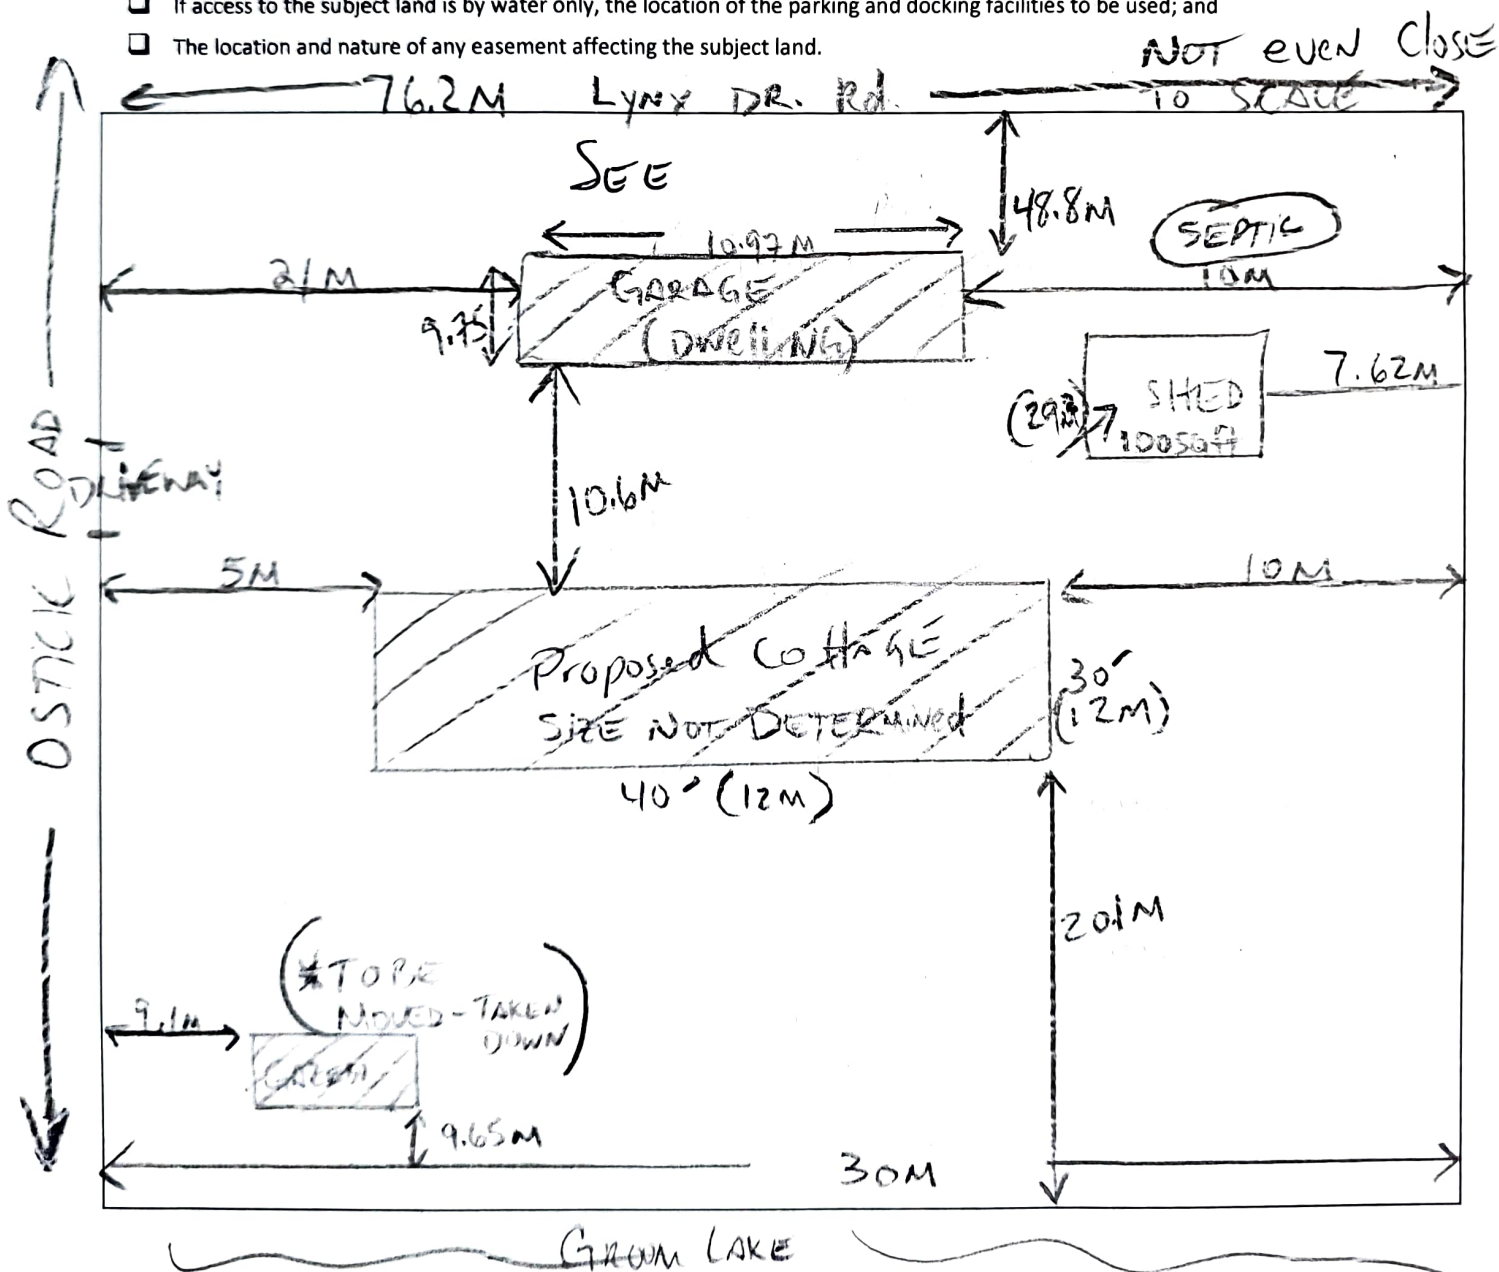 ❑ If access to the subject land is by water only, the location of the parking and docking facilities to be used; and
❑ The location and nature of any easement affecting the subject land.
NOT EVEN CLOSE
TO SCALE
76.2M LYNX DR. Rd.
SEE
48.8M
SEPTIC
10.97M
21M
10M
GARAGE
(DWELLING)
9.75
7.62M
SHED
100SQft
OSTICK ROAD
DRIVEWAY
10.6M
5M
10M
Proposed COTTAGE
SIZE NOT DETERMINED
30'
(12M)
40' (12M)
20.1M
(*TO BE
MOVED-TAKEN
DOWN)
9.1M
9.65M
30M
LAKE